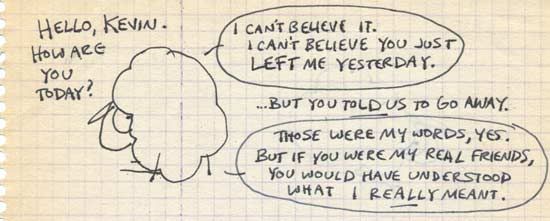 HELLO, KEVIN.
HOW ARE
YOU
TODAY?
I CAN'T BELIEVE IT.
I CAN'T BELIEVE YOU JUST
LEFT ME YESTERDAY.
...BUT YOU TOLD US TO GO AWAY.
THOSE WERE MY WORDS, YES.
BUT IF YOU WERE MY REAL FRIENDS,
YOU WOULD HAVE UNDERSTOOD
WHAT I REALLY MEANT.